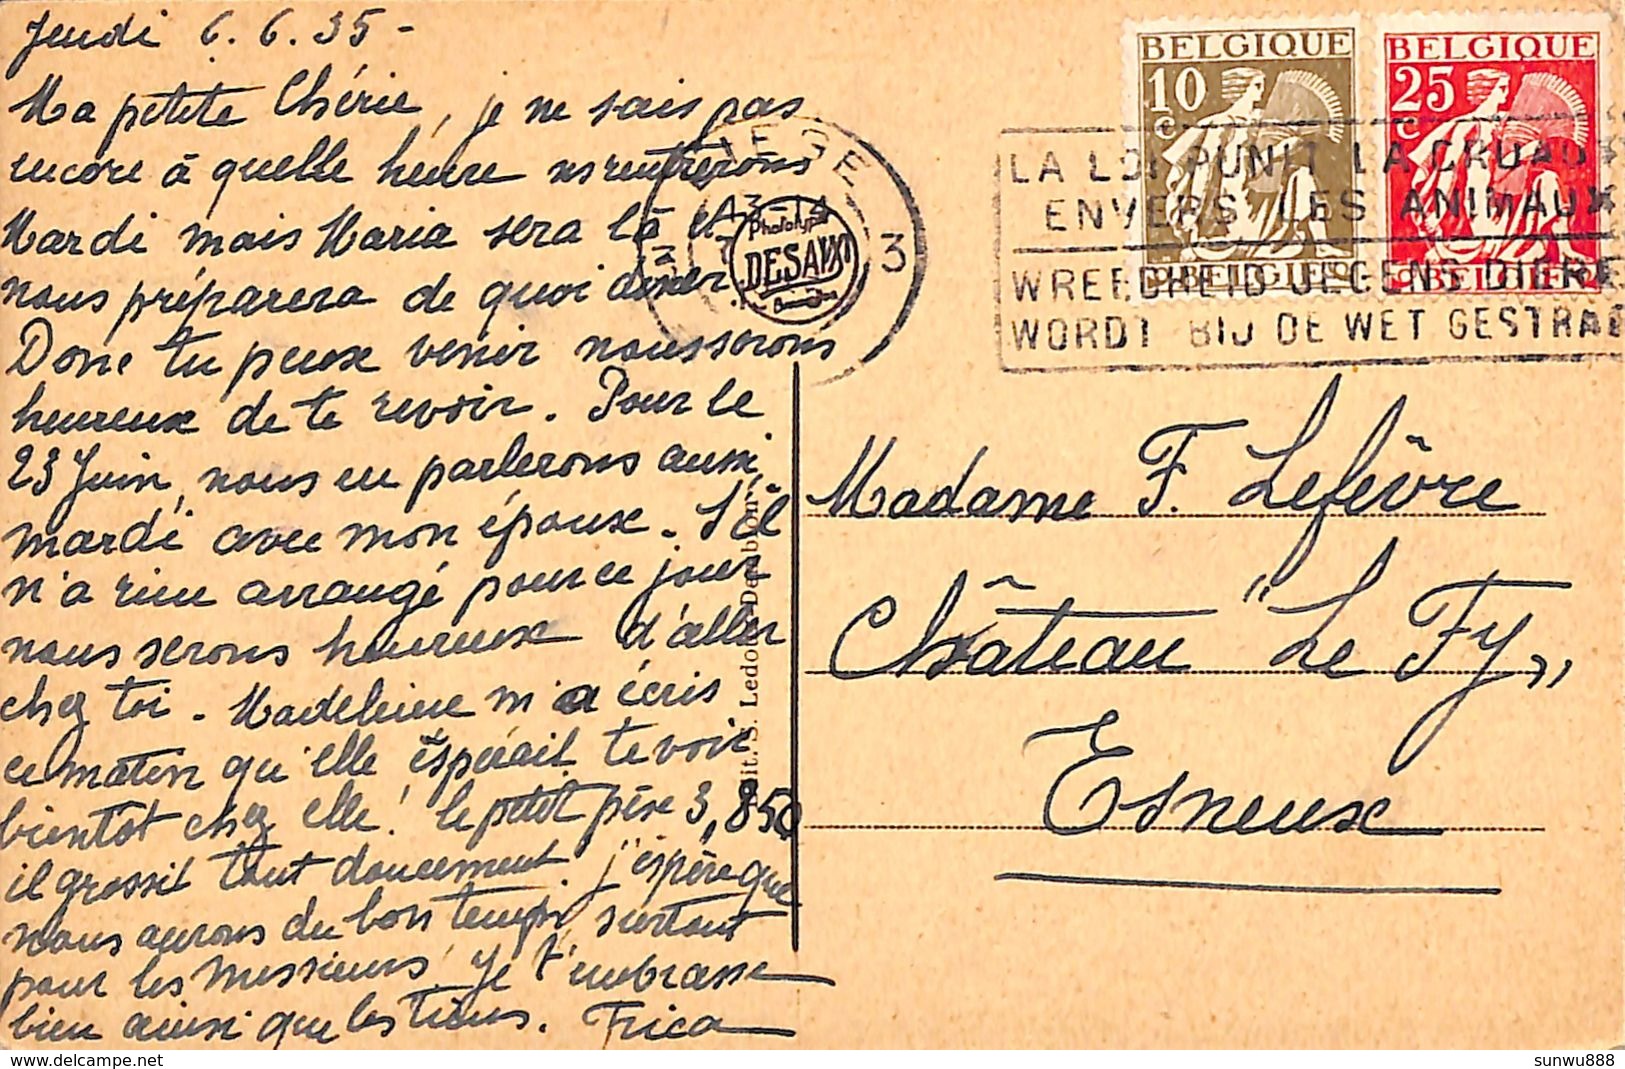 Jeudi 6.6.35-
Ma petite Chérie, je ne sais pas
encore à quelle heure ns rentrerons
Mardi mais Maria sera là et
nous préparera de quoi dîner
Donc tu peux venir nous serons
heureux de te revoir. Pour le
23 Juin, nous en parlerons aussi,
mardi avec mon époux. S'il
n'a rien arrangé pour ce jour
nous serons heureux d'aller
chez toi. Madeleine m'a écris
ce matin qu'elle espérait te voir
bientot chez elle! le petit pèse 3,850
il grossit tout doucement. j'espère que
nous aurons du bon temps, surtout
pour les Messieurs. Je t'embrasse
bien ainsi que les tiens. Frica
BELGIQUE
10 c
BELGIË
BELGIQUE
25 c
BELGIË
LIEGE 3
3
Phototypie
DESAIX
Bruxelles
LA LOI PUNIT LA CRUAUT
ENVERS LES ANIMAUX
WREEDHEID JEGENS DIERE
WORDT BIJ DE WET GESTRAF
Edit. S. Ledoux-Desablons
Madame F. Lefêvre
Château "Le Fy"
Esneux
delcampe.net
sunwu888